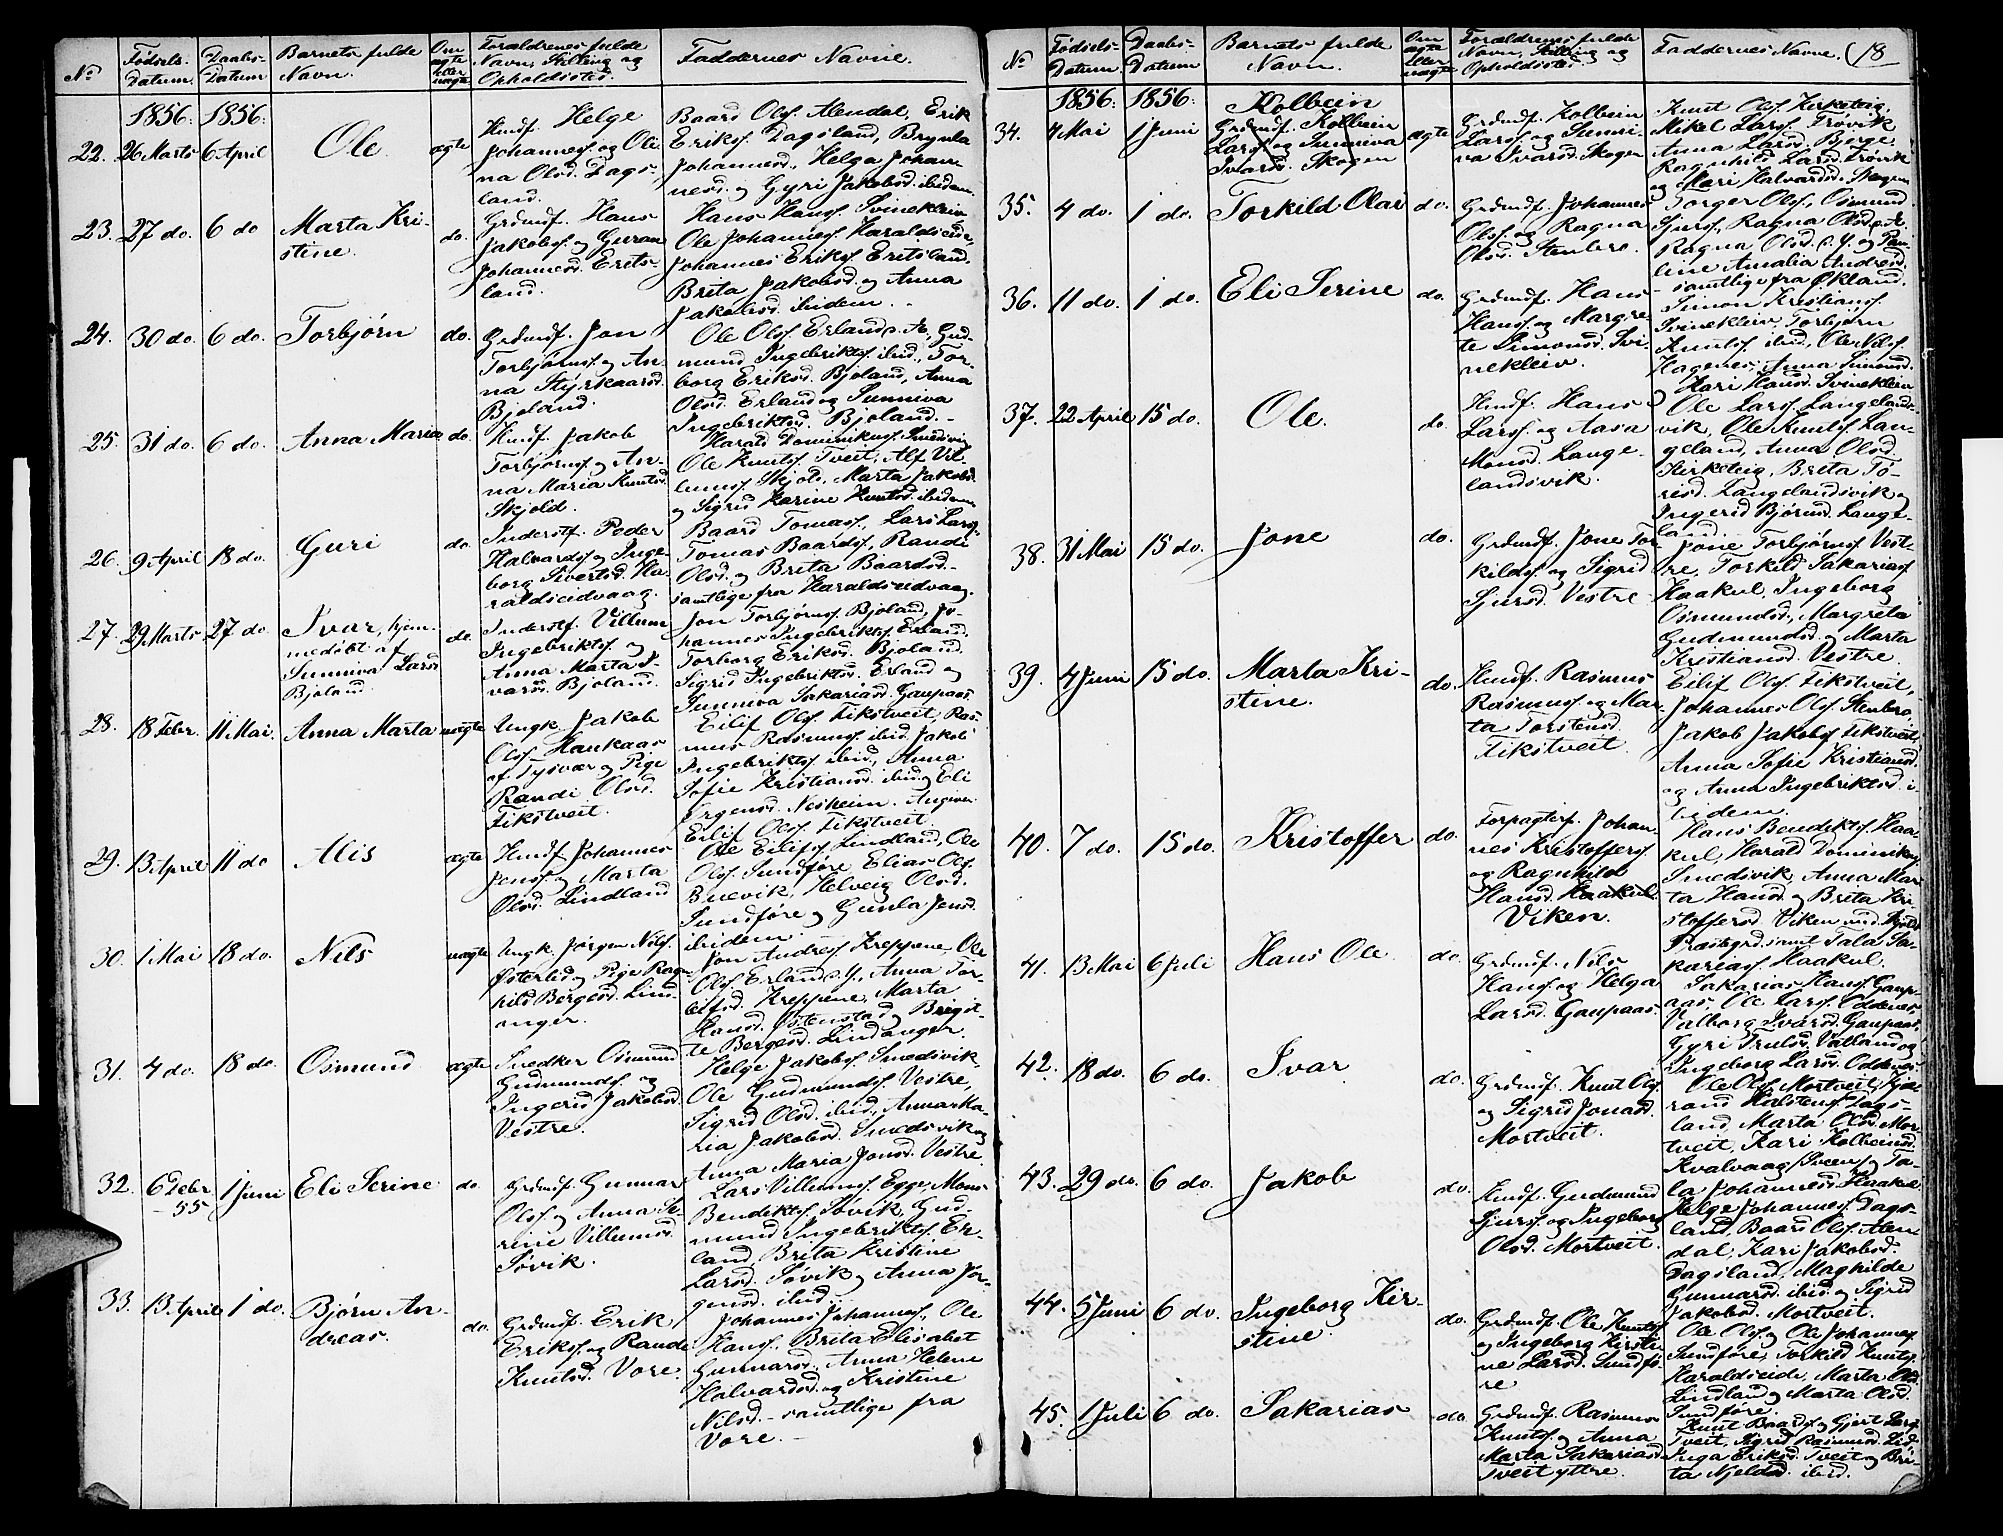 No
Fødsels-
Datum.
Daabs-
Datum
Barnets fulde
Navn.
Om
ægte
eller
uægte
Forældrenes fulde
Navn, Stilling og
Opholdssted.
Faddernes Navne.
1856. 1856.
22. 26 Marts 6 April
Ole
ægte
Husmf. Helge
Johannesf. og Ole
na Olsd. Dags-
land.
Baard Olsf. Alendal, Erik
Eriksf. Dagsland, Brynla
Johannesd., Helga Johan
nesd. og Gyri Jakobsd. ibidem.
23. 27 do. 6 do
Marta Kri-
stine.
do.
Grdmdf. Hans
Jakobsf. og Guran
Johannesd. Erets-
land.
Hans Hansf. Svinekleiv
Ole Johannesf. Haraldseide,
Johannes Eriksf. Eritsland.
Brita Jakobsd. og Anna
Jakobsd. ibidem.
24. 30 do. 6 do.
Torbjørn
do.
Grdmdf. Jon
Torbjørnsf. og An-
na Styrkaarsd.
Bjoland.
Ole Olsf. Erland s. æ., Gud-
mund Ingebriktsf. ibid., Tor-
borg Eriksd. Bjoland, Anna
Olsd. Erland og Sunniva
Ingebriktsd. Bjoland.
25. 31 do. 6 do.
Anna Maria
do.
Husmf. Jakob
Torbjørnsf. og An-
na Maria Knutsd.
Skjold.
Harald Dominikusf. Smedsvig
Ole Knutsf. Tveit, Alf Vil-
lumsf. Skjold, Marta Jakobsd.
og Sigrid Karine Knutsd. ibidem
26. 9 April 18 do.
Guri
do.
Inderstf. Peder
Halvardsf. og Inge-
borg Sivertsd. Ha-
raldseidvaag.
Baard Tomasf., Lars Larsf.
Tomas Baardsf., Randi
Olsd. og Brita Baardsd.
samtlige fra Haraldseidvaag.
27. 29 Marts 27 do
Ivar, hjem-
medøbt af
Sunniva Larsd
Bjoland.
do.
Inderstf. Villum
Ingebriktsf. og
Anna Marta I-
varsd. Bjoland.
Jon Torbjørnsf. Bjoland, Jo-
hannes Ingebriktsf. Erland.
Torborg Eriksd. Bjoland.
Sigrid Ingebriktsd. Erland og
Sunniva Sakariasd. Gaupaas
28. 18 Febr. 11 Mai.
Anna Marta
uægte
Ungk. Jakob
Olsf. Haukaas
af Tysvær og Pige
Randi Olsd.
Fikstveit.
Eilif Olsf. Fikstveit, Ras-
mus Rasmusf. ibid. Jakob
Ingebriktsf. ibid., Anna
Sofie Kristiansd. ibid. og Eli
Ørgensd. Nesheim. Angiver
Eilif Olsf. Fikstveit.
29. 13 April 11 do
Alis
ægte
Husmf Johannes
Jensf. og Marta
Olsd. Lindland
Ole Eilifsf. Lindland, Ole
Olsf. Sundføre, Elias Olsf.
Buevik, Helveig Olsd.
Sundføre og Gunla Jensd.
ibidem.
30. 1 Mai 18 do.
Nils
uægte
Ungk. Jørgen Nilsf.
Østerlid og Pige Ragn
hild Bergesd. Lind-
anger.
Jon Andresf. Kreppene, Ole
Olsf. Erland s. y., Anna Tor-
leifsd. Kreppene, Marta
Hansd. Østenstad og Brigit-
te Bergesd. Lindanger.
31. 4 do. 18 do.
Osmund
ægte
Snedker Osmund
Gudmundsf. og
Ingerid Jakobsd.
Vestre.
Helge Jakobsf. Smedsvik
Ole Gudmundsf. Vestre,
Sigrid Olsd. ibid., Anna Ma-
ria Jakobsd. Smedsvik og
Anna Maria Jonsd. Vestre.
32. 6 Febr 1 Juni
- 55
Eli Serine
do.
Grdmdf. Gunnar
Olsf. og Anna Se-
rine Villumsd.
Søvik.
Lars Villumsf. Egge, Mons
Bendiktsf. Søvik, Gud-
mund Ingebriktsf. Er-
land, Brita Kristine
Larsd. Søvik og Anna Jør-
gensd. ibid.
33. 13 April 1 do.
Bjørn An-
dreas.
do.
Grdmdf. Erik
Eriksf. og Rande
Knutsd. Vore.
Johannes Johannesf., Ole
Hansf. Brita Elisabet
Gunnarsd. Anna Helene
Halvardsd. og Kristine
Nilsd. - samtlige fra
Vore.
No
Fødsels-
Datum.
Daabs-
Datum
Barnets fulde
Navn.
Om
ægte
eller
uægte
Forældrenes fulde
Navn, Stilling og
Opholdssted.
Faddernes Navne.
18
1856. 1856.
34. 4 Mai 1 Juni
Kolbein
Grdmdf. Kolbein
Larsf og Sunniva
Ivarsd. Skogen
ægte
Grdmdf. Kolbein
Larsf. og Sunni-
va Ivarsd. Skogen
Knut Olsf. Kirketeig,
Mikel Larsf. Trøvik
Anna Larsd. Bjerge
Ragnhild Larsd. Trøvik
og Mari Halvardsd. Skogen
35. 4 do. 1 do.
Torkild Olai
do.
Grdmdf. Johannes
Olsf. og Ragna
Olsd. Stenbro.
Torger Olsf., Osmund
Sjursf., Ragna Olsd. s. æ.
Ragna Olsd. s. y. og Pau-
line Amalia Andresd.
samtlige fra Økland.
36. 11 do. 1 do.
Eli Serine
do.
Grdmdf. Hans
Hansf. og Margre-
te Simonsd. Svi-
nekleiv.
Simon Kristiansf.
Svinekleiv, Torbjørn
Knutsf. ibid., Ole Nilsf.
Hagenes, Anna Simonsd.
Kari Hansd. Svinekleiv
37. 22 April 15 do.
Ole.
do.
Husmf. Hans
Larsf. og Aasa
Monsd. Lange-
landsvik.
Ole Larsf. Langelands-
vik, Ole Knutsf. Lan-
geland, Anna Olsd.
Kirketeig, Brita To-
resd. Langelandsvik og
Ingerid Bjørnsd. Lange-
land.
38. 31 Mai 15 do.
Jone
do.
Grdmdf. Jone Tor-
kildsf. og Sigrid
Sjursd. Vestre
Jone Torbjørnsf. Vest-
re, Torkild Sakariasf.
Haakul, Ingeborg
Osmundsd., Margreta
Gudmundsd. og Marta
Kristiansd. Vestre.
39. 4 Juni 15 do.
Marta Kri-
stine.
do.
Husmf. Rasmus
Rasmusf. og Mar-
ta Torstensd.
Fikstveit.
Eilif Olsf. Fikstveit,
Johannes Olsf. Stenbro
Jakob Jakobsf. Fikstveit
Anna Sofie Kristiansd.
og Anna Ingebriktsd. i-
bidem.
40. 7 do. 15 do.
Kristoffer
do.
Forpagterf. Johan-
nes Kristoffersf.
og Ragnhild
Hansd. Haakul.
Viken.
Hans Bendiktsf. Haa-
kul, Harald Dominikusf.
Smedsvik, Anna Mar-
ta Hansd. og Brita Kri-
stoffersd. Viken und. Skjold
Præstegrd. samt Tala Sa-
kariasf. Haakul.
41. 13 Mai 6 Juli
Hans Ole
do.
Grdmdf. Nils
Hansf. og Helga
Larsd. Gaupaas.
Sakarias Hansf. Gaup-
aas, Ole Larsf. Oddenes,
Valborg Ivarsd. Gaupaas,
Gyri Trulsd. Vatland og
Ingeborg Larsd. Oddenes.
42. 18 do. 6 do.
Ivar
do.
Grdmdf. Knut Olsf.
og Sigrid Jonasd.
Mortveit.
Ole Olsf. Mortveit, Tjøe-
rand Halstensf. Dags-
land, Marta Olsd. Mor-
tveit, Kari Kolbeinsd.
Kvalvaag (Sveen) og Ta-
la Johannesd. Haakul
43. 29 do. 6 do.
Jakob
do.
Husmf. Gudmund
Sjursf. og Ingeborg
Olsd. Mortveit.
Helge Johannesf. Dags-
land, Baard Olsf. Alen-
dal, Kari Jakobsd.
Dagsland, Maghilde
Gunnarsd. ibid. og Sigrid
Jakobsd. Mortveit.
44. 5 Juni 6 do.
Ingeborg Kir-
stine.
do.
Grdmdf. Ole Knutsf.
og Ingeborg Kirsti-
ne Larsd. Sundfø-
re
Ole Olsf. og Ole Johannesf.
Sundføre, Torkild Knutsf.
Haraldseide, Marta Olsd.
Lindland og Marta Olsd.
Sundføre.
45. 1 Juli 6 do.
Sakarias
do.
Grdmdf. Rasmus
Knutsf. og Anna
Marta Sakariasd.
Tveit yttre.
Knut Baardsf. og Gjert Larsf.
Tveit, Sigrid Rasmusd. Lid.
Inga Eriksd. Tveit og Bri-
ta Njelsd. ibid.